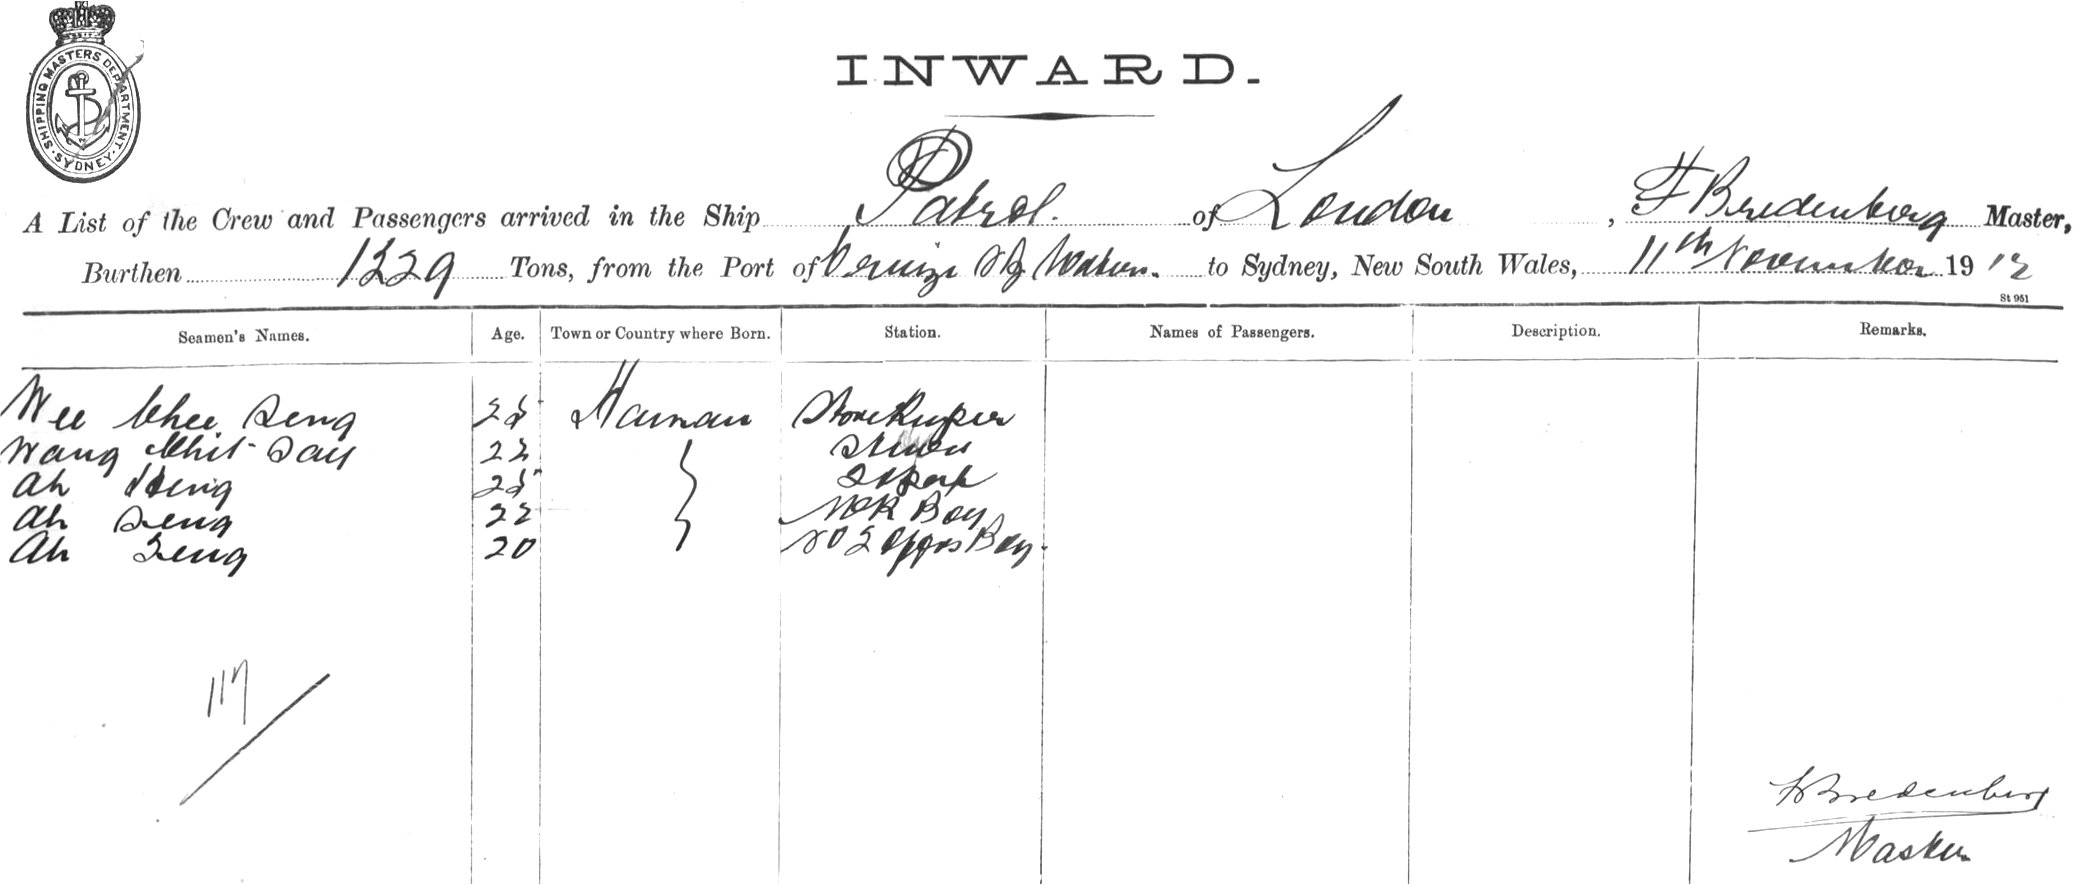 SHIPPING MASTERS DEPARTMENT. SYDNEY.
INWARD.
A List of the Crew and Passengers arrived in the Ship Patrol. of London, F Bredenberg Master,
Burthen 1229 Tons, from the Port of Cruize to Sydney, New South Wales, 11th November 1912
St 951
Seamen's Names. Age. Town or Country where Born. Station. Names of Passengers. Description. Remarks.
Wee Chee Seng 25 Hainan Storekeeper
Wang Whit Say 22
Ah 25
Ah Seng 22 Boy
Ah Seng 20 No 2 Offrs Boy.
117
F Bredenberg
Master